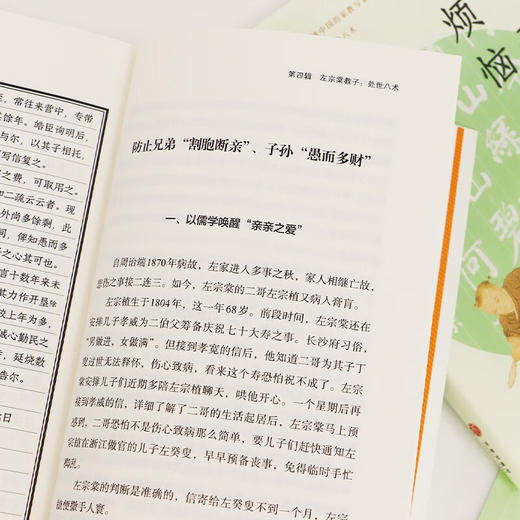 至，常往来营中，专带
其馀年。皓臣询明后，
与尔，以其子相托，
写信复之。
之费，可取用之。
二疏云云者。现
外尚多馀剩，此
同，俾知愚而多
之心其可也。
言十数年来未
其力作开垦
较上年为多，
诚心勤民之
，延烧数
告尔。
日
第四辑 左宗棠教子：处世八术
防止兄弟“割胞断亲”、子孙“愚而多财”
一、以儒学唤醒“亲亲之爱”
自周诒端1870年病故，左家进入多事之秋，家人相继亡故，
悲伤之事接二连三。如今，左宗棠的二哥左宗植又病入膏肓。
左宗植生于1804年，这一年68岁。前段时间，左宗棠还在
安排儿子孝威为二伯父筹备庆祝七十大寿之事。长沙府习俗，
“男做进，女做满”。但接到孝宽的信后，他知道二哥为其子丁
叟过世无法释怀，伤心致病，看来这个寿恐怕祝不成了。左宗
棠安排儿子们近期多陪左宗植聊天，哄他开心。一个星期后再
接到孝威的信，详细了解了二哥的生活起居后，左宗棠马上预
感到，二哥恐怕不是伤心致病那么简单，要儿子们赶快通知左
宗植在浙江做官的儿子左癸叟，早早预备丧事，免得临时手忙
脚乱。
左宗棠的判断是准确的，信寄给左癸叟不到一个月，左宗
植便撒手人寰。
烦
恼